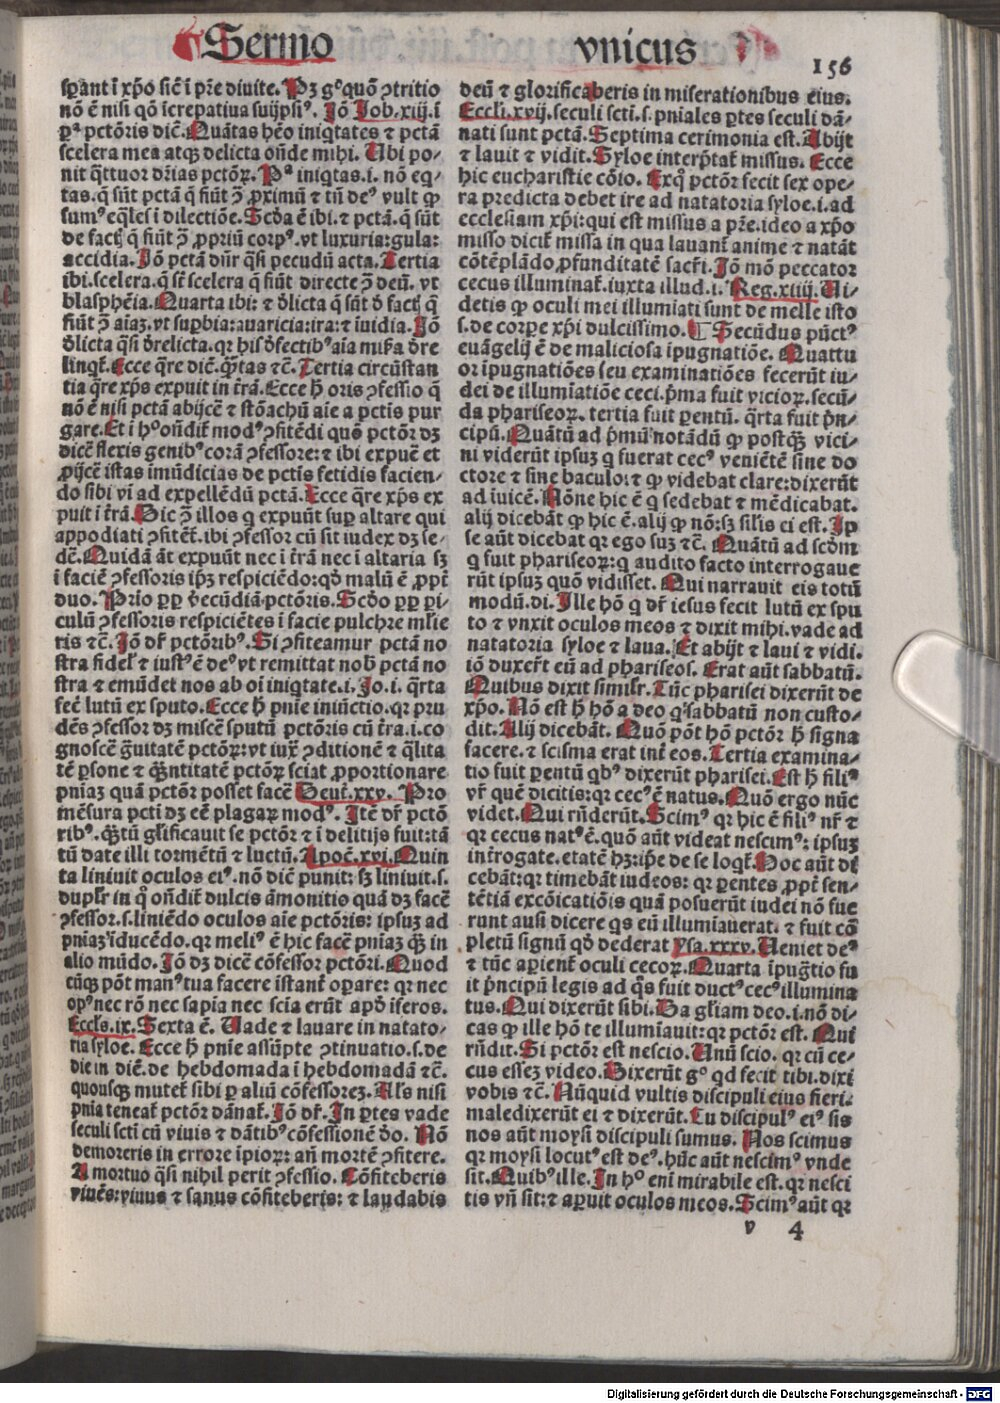 Sermo vnicus 156
sperant ī xp̄o sic̄ ī pr̄e diuite. Pꝫ gͦ quō ↄtritio
nō ē nisi qn̄ īcrepatiua suijpsiꝰ. Iō Iob.xiij.ī
pͣ pctōris dic̄. Quātas hēo iniqtates ⁊ pctā
scelera mea atqꝫ delicta ōn̄de mihi. Ubi po-
nit q̄ttuor dr̄ias pctōꝝ. Pͣ iniqtas.i. nō eq-
tas.q̄ sūt pctā q̄ fiūt ↄ̄ ꝓximū ⁊ tū deꝰ vult ꝙ
simꝰ eq̄les ī dilectiōe. Scd̄a ē ibi.⁊ pctā.q̄ sūt
de factꝭ q̄ fiūt ↄ̄ ꝓpriū corpꝰ.vt luxuria:gula:
accidia. Iō pctā dn̄r q̄si pecudū acta. Tertia
ibi.scelera.q̄ st̄ scelera q̄ fiūt directe ↄ̄ deū. vt
blasphēia. Quarta ibi: ⁊ d̄licta q̄ sūt d̄ factꝭ q̄
fiūt ↄ̄ aīaꝫ.vt suꝑbia:auaricia:ira:⁊ īuidia. Iō
d̄licta q̄si d̄relicta.qr his d̄fectibꝰ aīa misa d̄re
linqt̄. Ecce q̄re dic̄. Q̄ntas ⁊c̄. Tertia circūstan
tia q̄re xp̄s expuit in t̄rā. Ecce h̄ oris ↄfessio q̄
nō ē nisi pctā abijcē ⁊ stōachū aīe a pctīs pur
gare. Et ī hͦ on̄dit̄ modꝰ ↄfitēdi quē pctōr dꝫ
dicē flexis genibꝰ corā ↄfessore: ⁊ ibi expuē et
ꝓijcē istas īmūdicias de pctīs fetidis facien-
do sibi vī ad expellēdū pctā. Ecce q̄re xp̄s ex
puit ī t̄rā. Sic ↄ̄ illos q̄ expuūt suꝑ altare qui
appodiati ↄfitēt̄. ibi ↄfessor cū sit iudex dꝫ se-
dē. Quidā āt expuūt nec ī t̄rā nec ī altaria sꝫ
ī faciē ↄfessoris ipꝫ respiciēdo:qd̄ malū ē ꝓpt̄
duo. Prio ꝓp v̄ecūdiā pctōris. Scd̄o ꝓp pi-
culū ↄfessoris respiciētes ī facie pulchre ml̄ie
ris ⁊c̄. Iō dr̄ pctōribꝰ. Si ↄfiteamur pctā no
stra fidel̄ ⁊ iustꝰ ē deꝰ vt remittat nob̄ pctā no
stra ⁊ emūdet nos ab oī iniqtate.i. Jo.i. q̄rta
fec̄ lutū ex sputo. Ecce h̄ pnīe iniūctio.qr pru
dēs ↄfessor dꝫ miscē sputū pctōris cū t̄ra.i.co
gnoscē ḡuitatē pctōꝝ:vt iux̄ ↄditionē ⁊ q̄lita
tē ꝑsone ⁊ q̄ntitatē pctōꝝ sciat ꝓportionare
pniaꝫ quā pctōr posset facē Deut.xxv. Pro
mēsura pcti dꝫ eē plagaꝝ modꝰ. Itē dr̄ pctō
ribꝰ. q̄tū gl̄ificauit se pctōr ⁊ ī delitijs fuit:tā
tū date illi tormētū ⁊ luctū. Apoc̄.xvi. Quin
ta liniuit oculos eiꝰ.nō dic̄ punit: sꝫ liniuit.s.
dupl̄r in qͦ on̄dit̄ dulcis āmonitis quā dꝫ facē
ↄfessor.s.liniēdo oculos aīe pctōris: ipsuꝫ ad
pniaꝫ īducēdo.qr meliꝰ ē hic facē pniaꝫ q̄ꝫ in
alio mūdo. Iō dꝫ dicē cōfessor pctōri. Quod
cūqꝫ pōt manꝰ tua facere īstant̄ oꝑare: qr nec
opꝰ nec rō nec sapīa nec scīa erūt apd̄ īferos.
Eccls.ix. Sexta ē. Uade ⁊ lauare in natato-
ria syloe. Ecce h̄ pnīe assūpte ↄtinuatio.s.de
die in diē.de hebdomada ī hebdomadā ⁊c̄.
quousqꝫ mutet̄ sibi ꝑ aliū cōfessoreꝫ. Als nisi
pnīa teneat̄ pctōr dānat̄. Iō dr̄. In ꝑtes vade
seculi sctī cū viuis ⁊ dātibꝰ cōfessionē d̄o. Nō
demoreris in errore īpioꝝ: an̄ mortē ↄfitere.
A mortuo q̄si nihil perit ↄfessio. Cōfiteberis
viuēs:viuus ⁊ sanus cōfiteberis: ⁊ laudabis
deū ⁊ glorificaberis in miserationibus eius.
Eccli.xvij.seculi sctī.s.pniales ꝑtes seculi dā-
nati sunt pctā. Septima cerimonia est. Abijt
⁊ lauit ⁊ vidit. Syloe interp̄tat̄ missus. Ecce
hic eucharistie cōio. Exqͦ pctōr fecit sex ope-
ra predicta debet ire ad natatoria syloe.i.ad
ecclesiam xp̄i:qui est missus a pr̄e.ideo a xp̄o
misso dicit̄ missa in qua lauant̄ anime ⁊ natāt
cōtēplādo ꝓfunditatē sacr̄i. Iō mō peccator
cecus illuminat̄.iuxta illud.i. Reg.xiiij. Ui-
detis ꝙ oculi mei illumīati sunt de melle isto
s.de corpe xp̄i dulcissimo. ¶ Secūdus pūctꝰ
euāgelij ē de maliciosa īpugnatiōe. Quattu
or īpugnatiōes seu examinatiōes fecerūt iu-
dei de illumīatiōe ceci.p̄ma fuit vicioꝝ.secū-
da phariseoꝝ. tertia fuit ꝑentū. q̄rta fuit p̄n-
cipū. Quātū ad p̄mū notādū ꝙ postq̄ꝫ vici-
ni viderūt ipsuꝫ q fuerat cecꝰ veniētē sine do
ctore ⁊ sine baculo: ⁊ ꝙ videbat clare:dixerūt
ad īuicē. Nōne hic ē q sedebat ⁊ mēdicabat.
alij dicebāt ꝙ hic ē.alij ꝙ nō:sꝫ silis ei est. Ip
se aūt dicebat qr ego suꝫ ⁊c̄. Quātū ad scd̄m
q fuit phariseoꝝ:q audito facto interrogaue
rūt ipsuꝫ quō vidisset. Qui narrauit eis totū
modū.di. Ille hō q dr̄ iesus fecit lutū ex spu
to ⁊ vnxit oculos meos ⁊ dixit mihi.vade ad
natatoria syloe ⁊ laua. Et abijt ⁊ laui ⁊ vidi.
iō duxer̄t eū ad phariseos. Erat aūt sabbatū.
Quibus dixit similr. Tūc pharisei dixerūt de
xp̄o. Nō est h̄ hō a deo qͣ sabbatū non custo-
dit. Alij dicebāt. Quō pōt hō pctōr h̄ signa
facere. ⁊ scisma erat int̄ eos. Tertia examina-
tio fuit ꝑentū qbꝰ dixerūt pharisei. Est h̄ filiꝰ
vr̄ quē dicitis:qr cecꝰ ē natus. Quō ergo nūc
videt. Qui rn̄derūt. Scimꝰ qr hic ē filiꝰ nr̄ ⁊
qr cecus natꝰ ē.quō aūt videat nescimꝰ: ipsuꝫ
int̄rogate.etatē hꝫ:ip̄e de se loqt̄. Hoc aūt di
cebāt:qr timebāt iudeos: qr ꝑentes ꝓpt̄ sen-
tētiā excōicatiōis quā posuerūt iudei nō fue
runt ausi dicere qs eū illumīauerat. ⁊ fuit cō
pletū signū qd̄ dederat Ysa.xxxv. Ueniet deꝰ
⁊ tūc aꝑient̄ oculi cecoꝝ. Quarta īpuḡtio fu
it p̄ncipū legis ad q̄s fuit ductꝰ cecꝰ illumina
tus. Qui dixerūt sibi. Da gl̄iam deo.i.nō di-
cas ꝙ ille hō te illumīauit:qr pctōr est. Qui
rn̄dit. Si pctōr est nescio. Unū scio. qr cū ce-
cus esseꝫ video. Dixerūt gͦ qd fecit tibi.dixi
vobis ⁊c̄. Nūquid vultis discipuli eius fieri.
maledixerūt ei ⁊ dixerūt. Tu discipulꝰ eiꝰ sis
nos aūt moysi discipuli sumus. Nos scimus
qr moysi locutꝰ est deꝰ. hūc aūt nescimꝰ vnde
sit. Quibꝰ ille. In hͦ eni mirabile est.qr nesci
tis vn̄ sit:⁊ aꝑuit oculos meos. Scimꝰ aūt qr
v 4
Digitalisierung gefördert durch die Deutsche Forschungsgemeinschaft - DFG